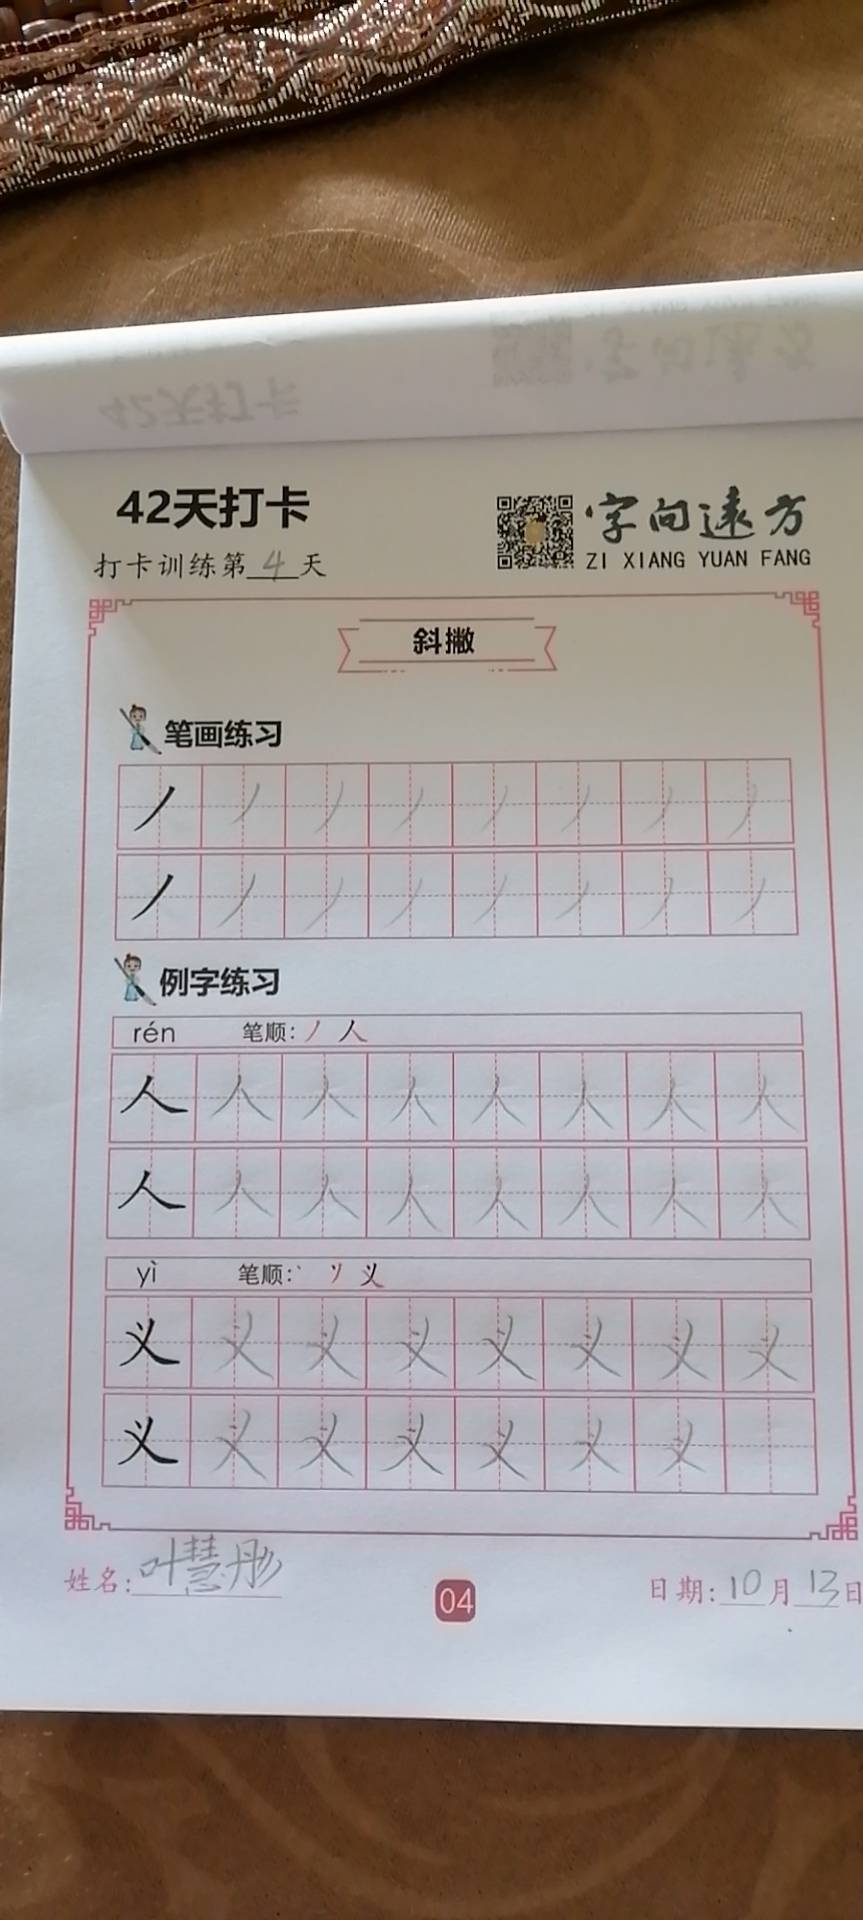 42天打卡
字向远方
ZI XIANG YUAN FANG
打卡训练第4天
斜撇
笔画练习
丿丿丿丿丿丿丿丿
丿丿丿丿丿丿丿丿
例字练习
rén 笔顺:丿人
人人人人人人人人
人人人人人人人人
yì 笔顺:丶丷义
义义义义义义义义
义义义义义义义
姓名:叶慧彤
04
日期:10月13日